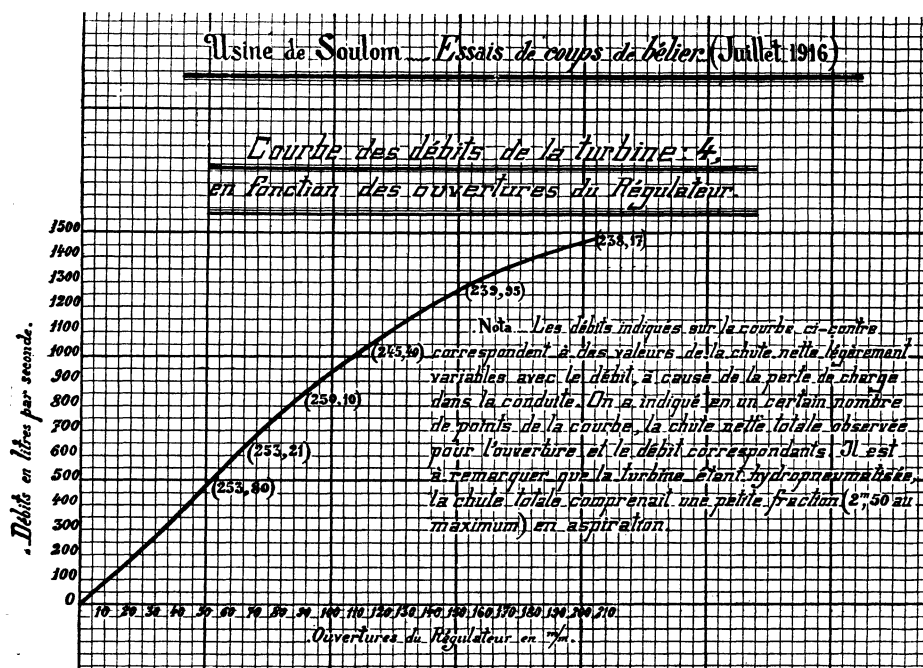 Usine de Soulom _ Essais de coups de bélier (Juillet 1916)
Courbe des débits de la turbine : 4,
en fonction des ouvertures du Régulateur.
Débits en litres par seconde.
1500
1400
1300
1200
1100
1000
900
800
700
600
500
400
300
200
100
0
(238,17)
(239,95)
(245,40)
(250,10)
(253,21)
(253,80)
Nota _ Les débits indiqués sur la courbe ci-contre
correspondent à des valeurs de la chute nette légèrement
variables avec le débit, à cause de la perte de charge
dans la conduite. On a indiqué en un certain nombre
de points de la courbe, la chute nette totale observée
pour l'ouverture et le débit correspondants. Il est
à remarquer que la turbine étant hydropneumatisée,
la chute totale comprenait une petite fraction (2m,50 au
maximum) en aspiration.
10 20 30 40 50 60 70 80 90 100 110 120 130 140 150 160 170 180 190 200 210
Ouvertures du Régulateur en m/m.